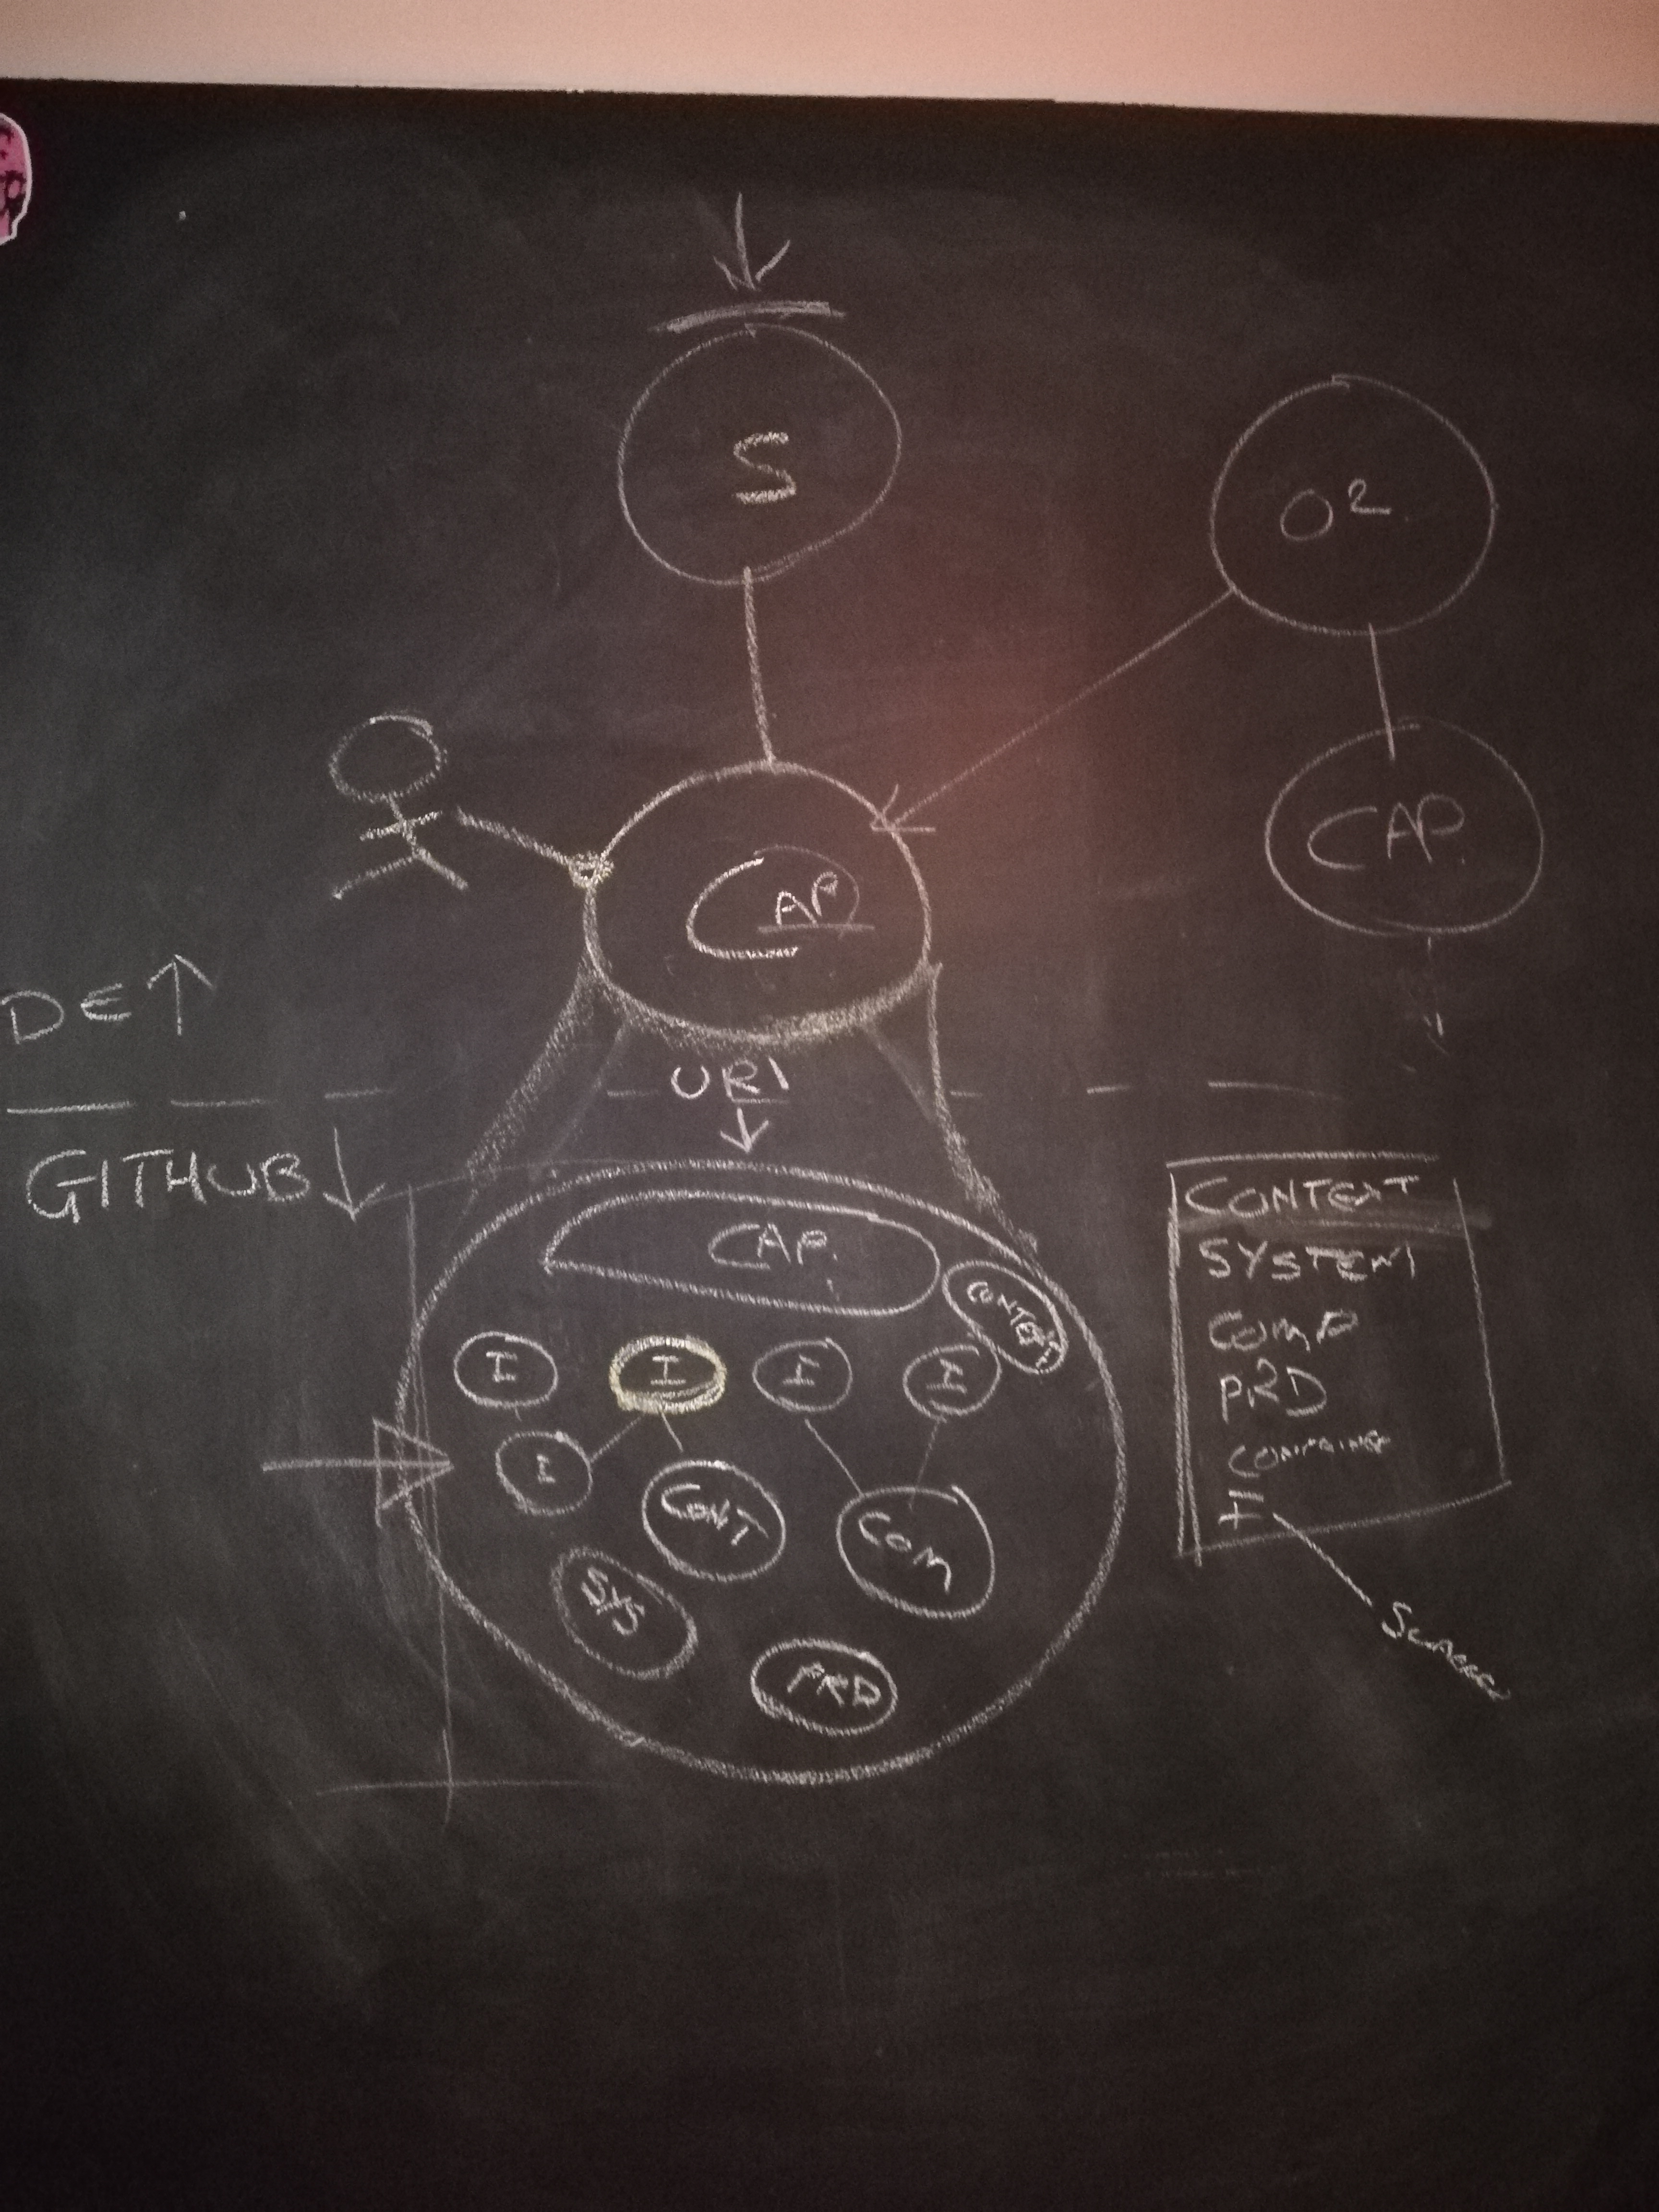 S
O²
CAP
CAP.
DE↑
URI
↓
GITHUB↓
CAP.
CONTEXT
I
I
I
I
I
CONT
COM
SYS
PRD
CONTEXT
SYSTEM
COMP
PRD
I